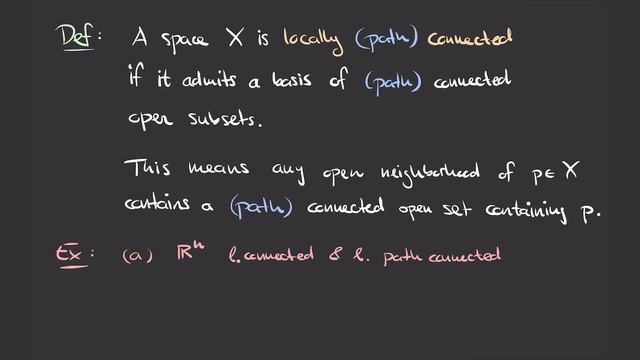 Def: A space X is locally (path) connected
if it admits a basis of (path) connected
open subsets.
This means any open neighborhood of p ∈ X
contains a (path) connected open set containing p.
Ex: (a) ℝⁿ l. connected & l. path connected